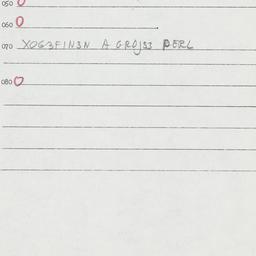 050
060
070 XOG3FINSN A GROJSS PERL
080